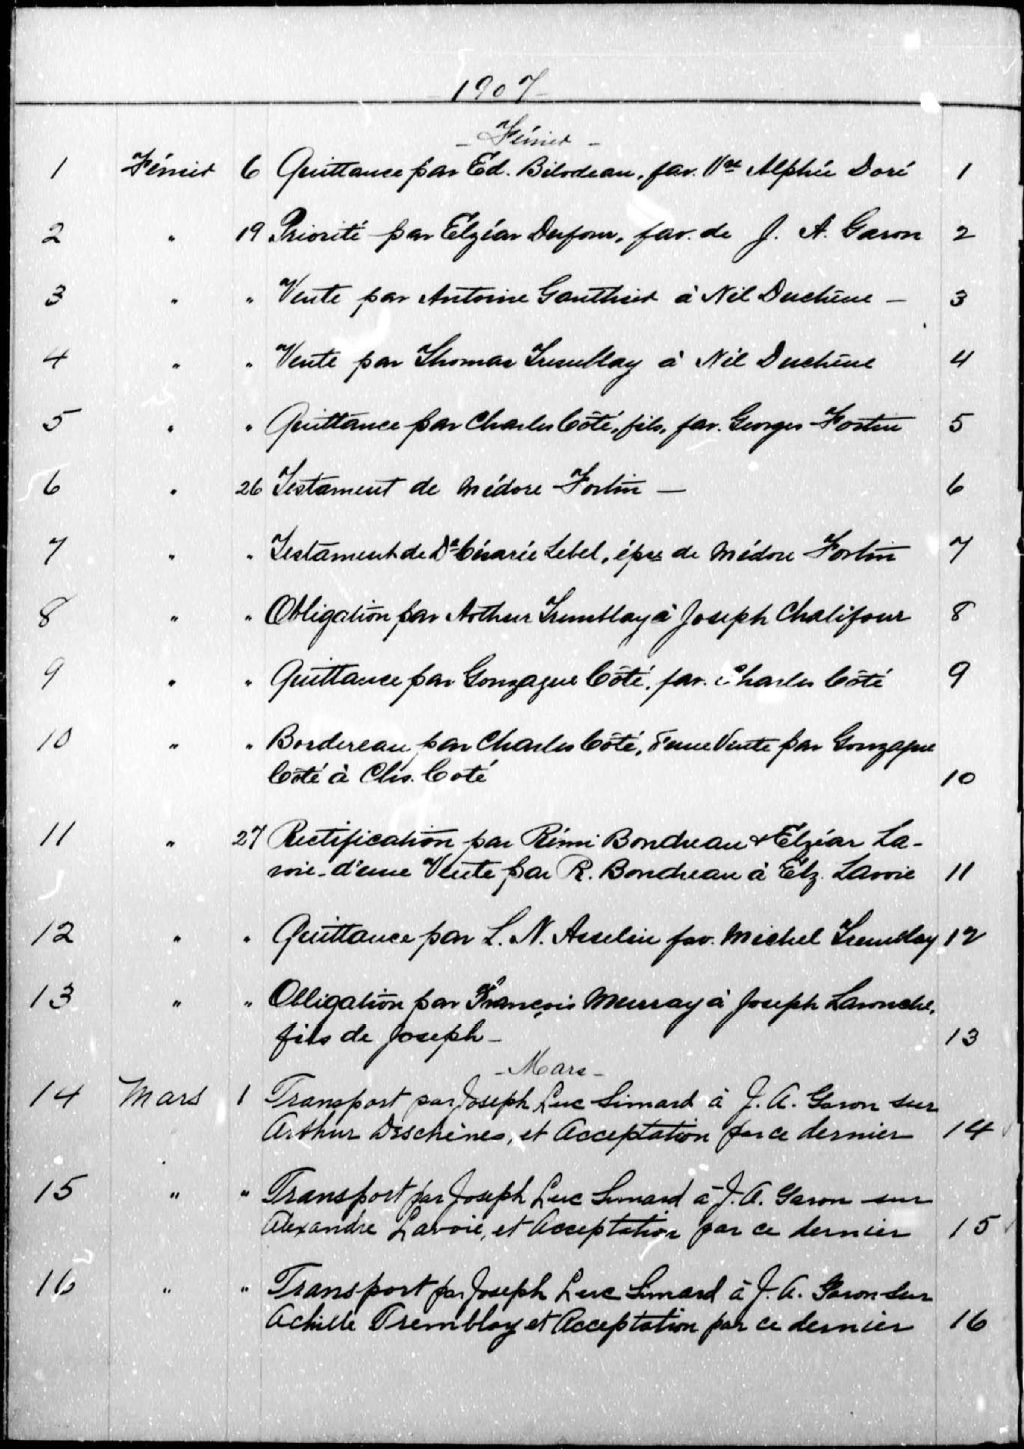 1907
Février
1 Février 6 Quittance par Éd. Bilodeau, fav. Vve Alphée Doré 1
2 " 19 Priorité par Elzéar Dufour, fav. de J. A. Garon 2
3 " " Vente par Antoine Gauthier à Nil Duchêne 3
4 " " Vente par Thomas Tremblay à Nil Duchêne 4
5 " " Quittance par Charles Côté, fils, fav. Georges Fortin 5
6 " 26 Testament de Médore Fortin 6
7 " " Testament de De Césarée Lebel, épse de Médore Fortin 7
8 " " Obligation par Arthur Tremblay à Joseph Chalifour 8
9 " " Quittance par Gonzague Côté, fav. Charles Côté 9
10 " " Bordereau par Charles Côté, d'une Vente par Gonzague
Côté à Chs. Coté 10
11 " 27 Rectification par Rémi Bondreau & Elzéar La-
voie d'une Vente par R. Bondreau à Élz. Lavoie 11
12 " " Quittance par L. N. Asselin fav. Michel Tremblay 12
13 " " Obligation par François Murray à Joseph Larouche,
fils de Joseph 13
Mars
14 Mars 1 Transport par Joseph Luc Simard à J. A. Garon sur
Arthur Dischênes, et Acceptation par ce dernier 14
15 " " Transport par Joseph Luc Simard à J. A. Garon sur
Alexandre Lavoie, et Acceptation par ce dernier 15
16 " " Transport par Joseph Luc Simard à J. A. Garon sur
Achille Tremblay et Acceptation par ce dernier 16